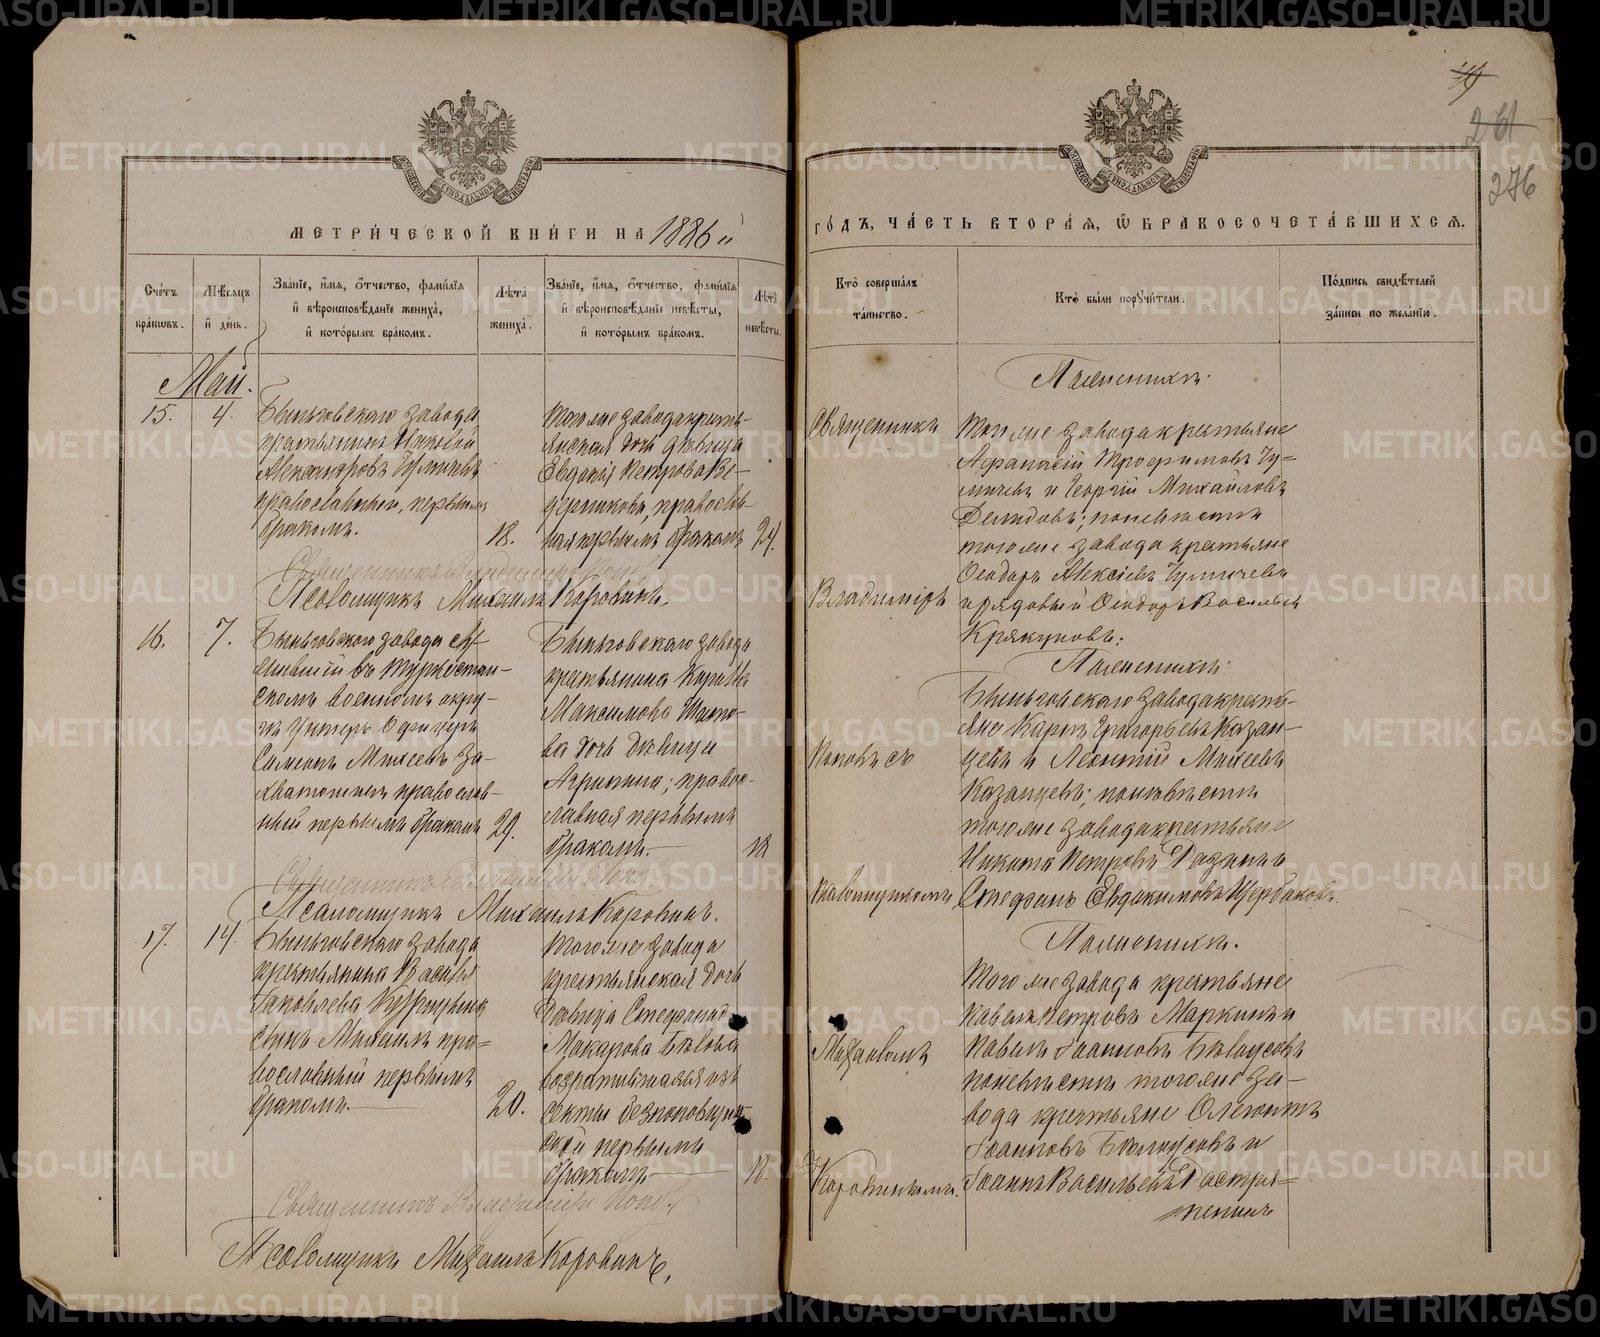 МЕТРИ́ЧЕСКОЙ КНИ́ГИ НА 1886 й
Сче́тъ бра́кѡвъ.
Мѣ́сяцъ й де́нь.
Зва́нїе, и́мя, ѻ́тчество, фами́лїя й вѣроисповѣ́данїе жениха̀, й кото́рымъ бра́комъ.
Лѣ́та жениха̀.
Зва́нїе, и́мя, ѻ́тчество, фами́лїя й вѣроисповѣ́данїе невѣ́сты, й кото́рымъ бра́комъ.
Лѣ́та невѣ́сты.
Май.
15.
4.
Быньговскаго завода
крестьянинъ
Александровъ
православный, первымъ
бракомъ.
18.
того же завода кресть-
янская дочь девица
Евдокія Петрова Ве-
дерникова, православ-
ная первымъ бракомъ
24.
Священникъ Владимиръ Поповъ
Псаломщикъ Михаилъ Коровинъ.
16.
7.
Быньговскаго завода слу-
жившій въ Туркестан-
скомъ военномъ окру-
гѣ Унтеръ Офицеръ
Симеонъ Михеевъ За-
хватошинъ православ-
ный первымъ бракомъ
29.
Быньговскаго завода
крестьянина
Максимова
ва дочь девица
Агрипина; правос-
лавная первымъ
бракомъ.
18
Священникъ Владимиръ Поповъ
Псаломщикъ Михаилъ Коровинъ.
17.
14.
Быньговскаго завода
крестьянина Василья
Яковлева
сынъ Михаилъ пра-
вославный первымъ
бракомъ.
20.
того же завода
крестьянская дочь
Девица Стефанида
Макарова
возратившаяся изъ
секты безпоповщин-
ской первымъ
бракомъ
18.
Священникъ Владимиръ Поповъ
Псаломщикъ Михаилъ Коровинъ.
261
276
ГО́ДЪ, ЧА́СТЬ ВТОРА́Я, Ѽ БРАКОСОЧЕТА́ВШИХСѦ.
Кто̀ соверша́лъ та́инство.
Кто̀ бы́ли поручи́тели.
По́дпись свидѣ́телей за́писи по жела́нїю.
Священникъ
Владимиръ
Поповъ съ
псаломщикомъ
Михаиломъ
Коровинымъ.
По женихѣ:
Того же завода крестьяне
Афанасій Трофимовъ
и Георгій Михайловъ
Демидовъ; по невѣстѣ
того же завода крестьяне
Феодоръ Алексіевъ
и рядовый Феодоръ Васильевъ
Крякуновъ.
По женихѣ:
Быньговскаго завода кресть-
яне Карпъ Григорьевъ Казан-
цевъ и Леонтій Михеевъ
Казанцевъ; по невѣстѣ
того же завода крестьяне
Никита Петровъ
Стефанъ Евдокимовъ Щербаковъ.
По женихѣ.
Того же завода крестьяне
Павелъ Петровъ Маркинъ и
Павелъ Іоанновъ Бѣлоусовъ
по невѣстѣ того же за-
вода крестьяне
Іоанновъ Бѣлоусовъ и
Іоаннъ Васильевъ
METRIKI.GASO-URAL.RU